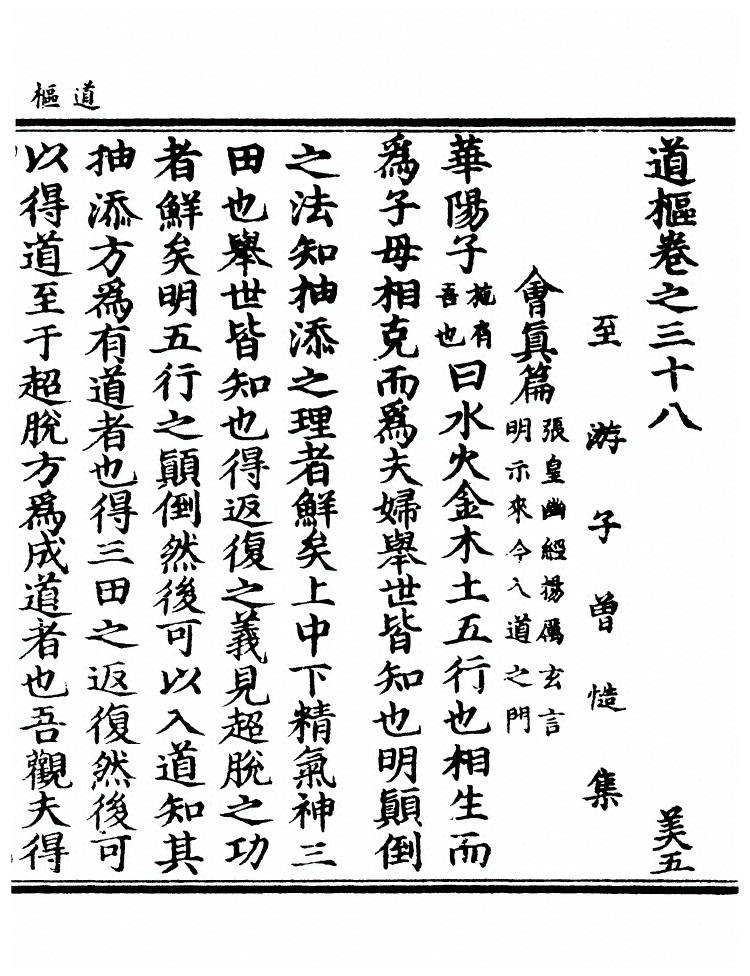 道樞
道樞卷之三十八　美五
至游子曾慥集
會真篇
張皇幽經揚厲玄言
明示來今入道之門
華陽子
施肩
吾也
曰水火金木土五行也相生而
爲子母相克而爲夫婦舉世皆知也明顛倒
之法知抽添之理者鮮矣上中下精氣神三
田也舉世皆知也得返復之義見超脫之功
者鮮矣明五行之顛倒然後可以入道知其
抽添方爲有道者也得三田之返復然後可
以得道至于超脫方爲成道者也吾觀夫得